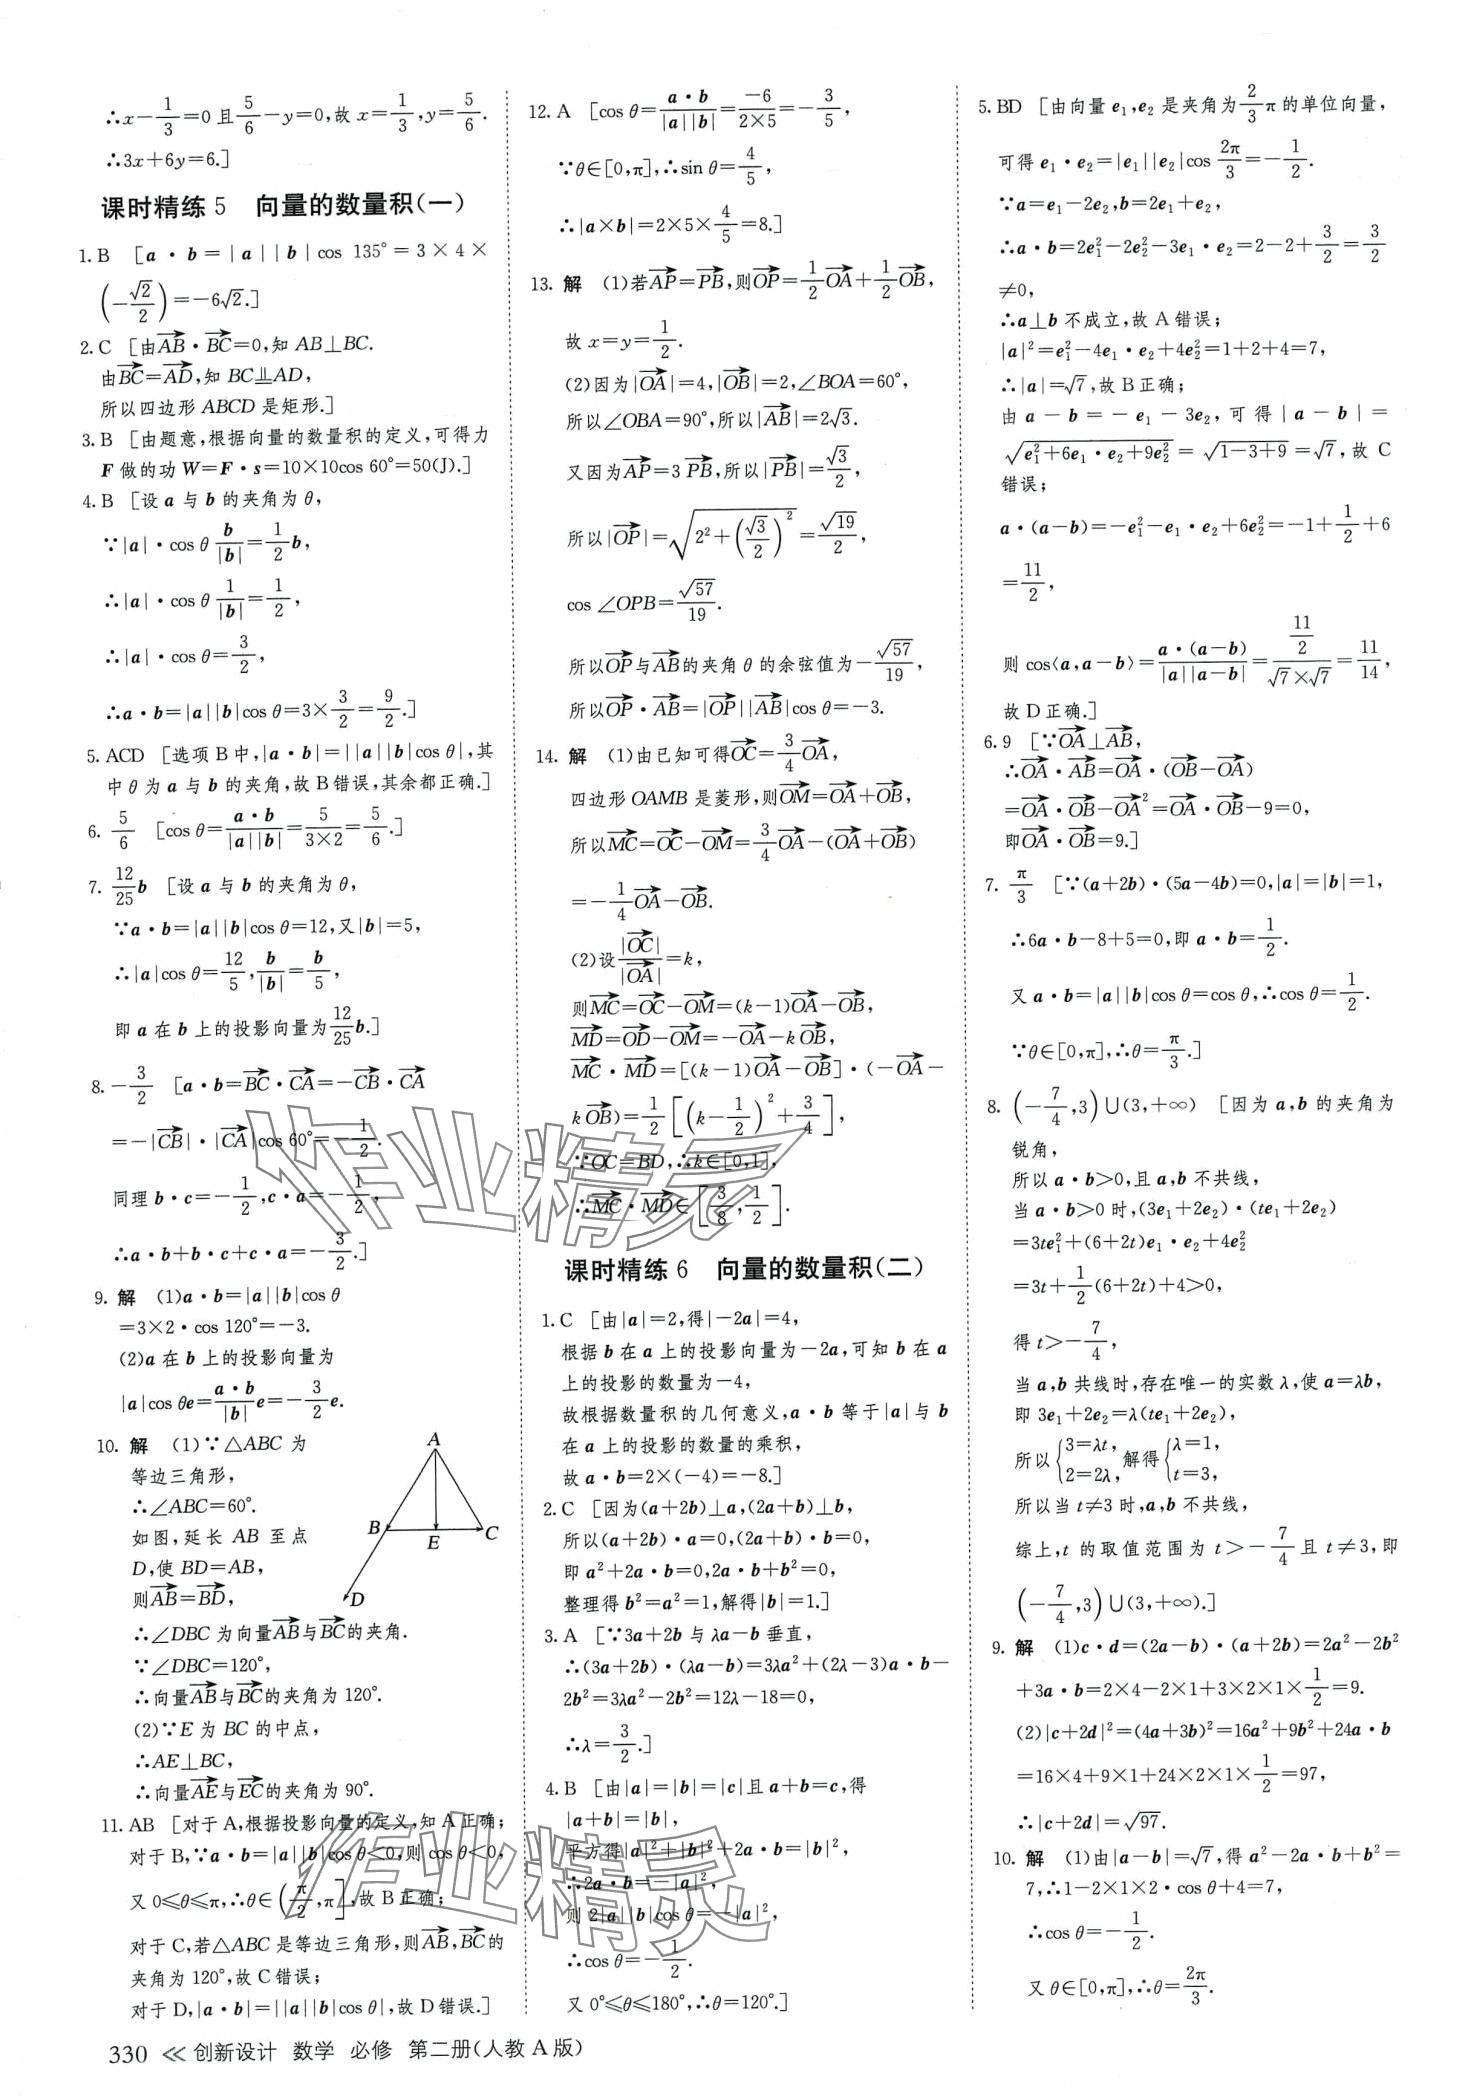 ∴x-1/3=0且5/6-y=0,故x=1/3,y=5/6.
∴3x+6y=6.]
课时精练5 向量的数量积(一)
1.B [a·b=|a||b|cos 135°=3×4×
(-√2/2)=-6√2.]
2.C [由AB→·BC→=0,知AB⊥BC.
由BC→=AD→,知BC⫫AD,
所以四边形ABCD是矩形.]
3.B [由题意,根据向量的数量积的定义,可得力
F做的功W=F·s=10×10cos 60°=50(J).]
4.B [设a与b的夹角为θ,
∵|a|·cos θ b/|b|=1/2 b,
∴|a|·cos θ 1/|b|=1/2,
∴|a|·cos θ=3/2,
∴a·b=|a||b|cos θ=3×3/2=9/2.]
5.ACD [选项B中,|a·b|=||a||b|cos θ|,其
中θ为a与b的夹角,故B错误,其余都正确.]
6. 5/6 [cos θ=a·b/|a||b|=5/3×2=5/6.]
7. 12/25 b [设a与b的夹角为θ,
∵a·b=|a||b|cos θ=12,又|b|=5,
∴|a|cos θ=12/5,b/|b|=b/5,
即a在b上的投影向量为12/25 b.]
8.-3/2 [a·b=BC→·CA→=-CB→·CA→
=-|CB→|·|CA→|cos 60°=-1/2.
同理b·c=-1/2,c·a=-1/2,
∴a·b+b·c+c·a=-3/2.]
9.解 (1)a·b=|a||b|cos θ
=3×2·cos 120°=-3.
(2)a在b上的投影向量为
|a|cos θe=a·b/|b| e=-3/2 e.
10.解 (1)∵△ABC为
等边三角形,
∴∠ABC=60°.
如图,延长AB至点
D,使BD=AB,
则AB→=BD→,
A
B
E
C
D
∴∠DBC为向量AB→与BC→的夹角.
∵∠DBC=120°,
∴向量AB→与BC→的夹角为120°.
(2)∵E为BC的中点,
∴AE⊥BC,
∴向量AE→与EC→的夹角为90°.
11.AB [对于A,根据投影向量的定义,知A正确;
对于B,∵a·b=|a||b|cos θ<0,则cos θ<0,
又0≤θ≤π,∴θ∈(π/2,π],故B正确;
对于C,若△ABC是等边三角形,则AB→,BC→的
夹角为120°,故C错误;
对于D,|a·b|=||a||b|cos θ|,故D错误.]
12.A [cos θ=a·b/|a||b|=-6/2×5=-3/5,
∵θ∈[0,π],∴sin θ=4/5,
∴|a×b|=2×5×4/5=8.]
13.解 (1)若AP→=PB→,则OP→=1/2 OA→+1/2 OB→,
故x=y=1/2.
(2)因为|OA→|=4,|OB→|=2,∠BOA=60°,
所以∠OBA=90°,所以|AB→|=2√3.
又因为AP→=3PB→,所以|PB→|=√3/2,
所以|OP→|=√(2²+(√3/2)²)=√19/2,
cos∠OPB=√57/19.
所以OP→与AB→的夹角θ的余弦值为-√57/19,
所以OP→·AB→=|OP→||AB→|cos θ=-3.
14.解 (1)由已知可得OC→=3/4 OA→,
四边形OAMB是菱形,则OM→=OA→+OB→,
所以MC→=OC→-OM→=3/4 OA→-(OA→+OB→)
=-1/4 OA→-OB→.
(2)设|OC→|/|OA→|=k,
则MC→=OC→-OM→=(k-1)OA→-OB→,
MD→=OD→-OM→=-OA→-kOB→,
MC→·MD→=[(k-1)OA→-OB→]·(-OA→-
kOB→)=1/2[(k-1/2)²+3/4],
∵OC=BD,∴k∈[0,1],
∴MC→·MD→∈[3/8,1/2].
课时精练6 向量的数量积(二)
1.C [由|a|=2,得|-2a|=4,
根据b在a上的投影向量为-2a,可知b在a
上的投影的数量为-4,
故根据数量积的几何意义,a·b等于|a|与b
在a上的投影的数量的乘积,
故a·b=2×(-4)=-8.]
2.C [因为(a+2b)⊥a,(2a+b)⊥b,
所以(a+2b)·a=0,(2a+b)·b=0,
即a²+2a·b=0,2a·b+b²=0,
整理得b²=a²=1,解得|b|=1.]
3.A [∵3a+2b与λa-b垂直,
∴(3a+2b)·(λa-b)=3λa²+(2λ-3)a·b-
2b²=3λa²-2b²=12λ-18=0,
∴λ=3/2.]
4.B [由|a|=|b|=|c|且a+b=c,得
|a+b|=|b|,
平方得|a|²+|b|²+2a·b=|b|²,
∴2a·b=-|a|²,
则2|a||b|cos θ=-|a|²,
∴cos θ=-1/2.
又0°≤θ≤180°,∴θ=120°.]
5.BD [由向量e₁,e₂是夹角为2/3 π的单位向量,
可得e₁·e₂=|e₁||e₂|cos 2π/3=-1/2.
∵a=e₁-2e₂,b=2e₁+e₂,
∴a·b=2e₁²-2e₂²-3e₁·e₂=2-2+3/2=3/2
≠0,
∴a⊥b不成立,故A错误;
|a|²=e₁²-4e₁·e₂+4e₂²=1+2+4=7,
∴|a|=√7,故B正确;
由a-b=-e₁-3e₂,可得|a-b|=
√(e₁²+6e₁·e₂+9e₂²)=√(1-3+9)=√7,故C
错误;
a·(a-b)=-e₁²-e₁·e₂+6e₂²=-1+1/2+6
=11/2,
则cos⟨a,a-b⟩=a·(a-b)/|a||a-b|=(11/2)/(√7×√7)=11/14,
故D正确.]
6.9 [∵OA→⊥AB→,
∴OA→·AB→=OA→·(OB→-OA→)
=OA→·OB→-OA→²=OA→·OB→-9=0,
即OA→·OB→=9.]
7. π/3 [∵(a+2b)·(5a-4b)=0,|a|=|b|=1,
∴6a·b-8+5=0,即a·b=1/2.
又a·b=|a||b|cos θ=cos θ,∴cos θ=1/2.
∵θ∈[0,π],∴θ=π/3.]
8.(-7/4,3)∪(3,+∞) [因为a,b的夹角为
锐角,
所以a·b>0,且a,b不共线,
当a·b>0时,(3e₁+2e₂)·(te₁+2e₂)
=3te₁²+(6+2t)e₁·e₂+4e₂²
=3t+1/2(6+2t)+4>0,
得t>-7/4,
当a,b共线时,存在唯一的实数λ,使a=λb,
即3e₁+2e₂=λ(te₁+2e₂),
所以{3=λt,2=2λ,解得{λ=1,t=3,
所以当t≠3时,a,b不共线,
综上,t的取值范围为t>-7/4且t≠3,即
(-7/4,3)∪(3,+∞).]
9.解 (1)c·d=(2a-b)·(a+2b)=2a²-2b²
+3a·b=2×4-2×1+3×2×1×1/2=9.
(2)|c+2d|²=(4a+3b)²=16a²+9b²+24a·b
=16×4+9×1+24×2×1×1/2=97,
∴|c+2d|=√97.
10.解 (1)由|a-b|=√7,得a²-2a·b+b²=
7,∴1-2×1×2·cos θ+4=7,
∴cos θ=-1/2.
又θ∈[0,π],∴θ=2π/3.
330 ≪ 创新设计 数学 必修 第二册(人教A版)
作业精灵
作业精灵